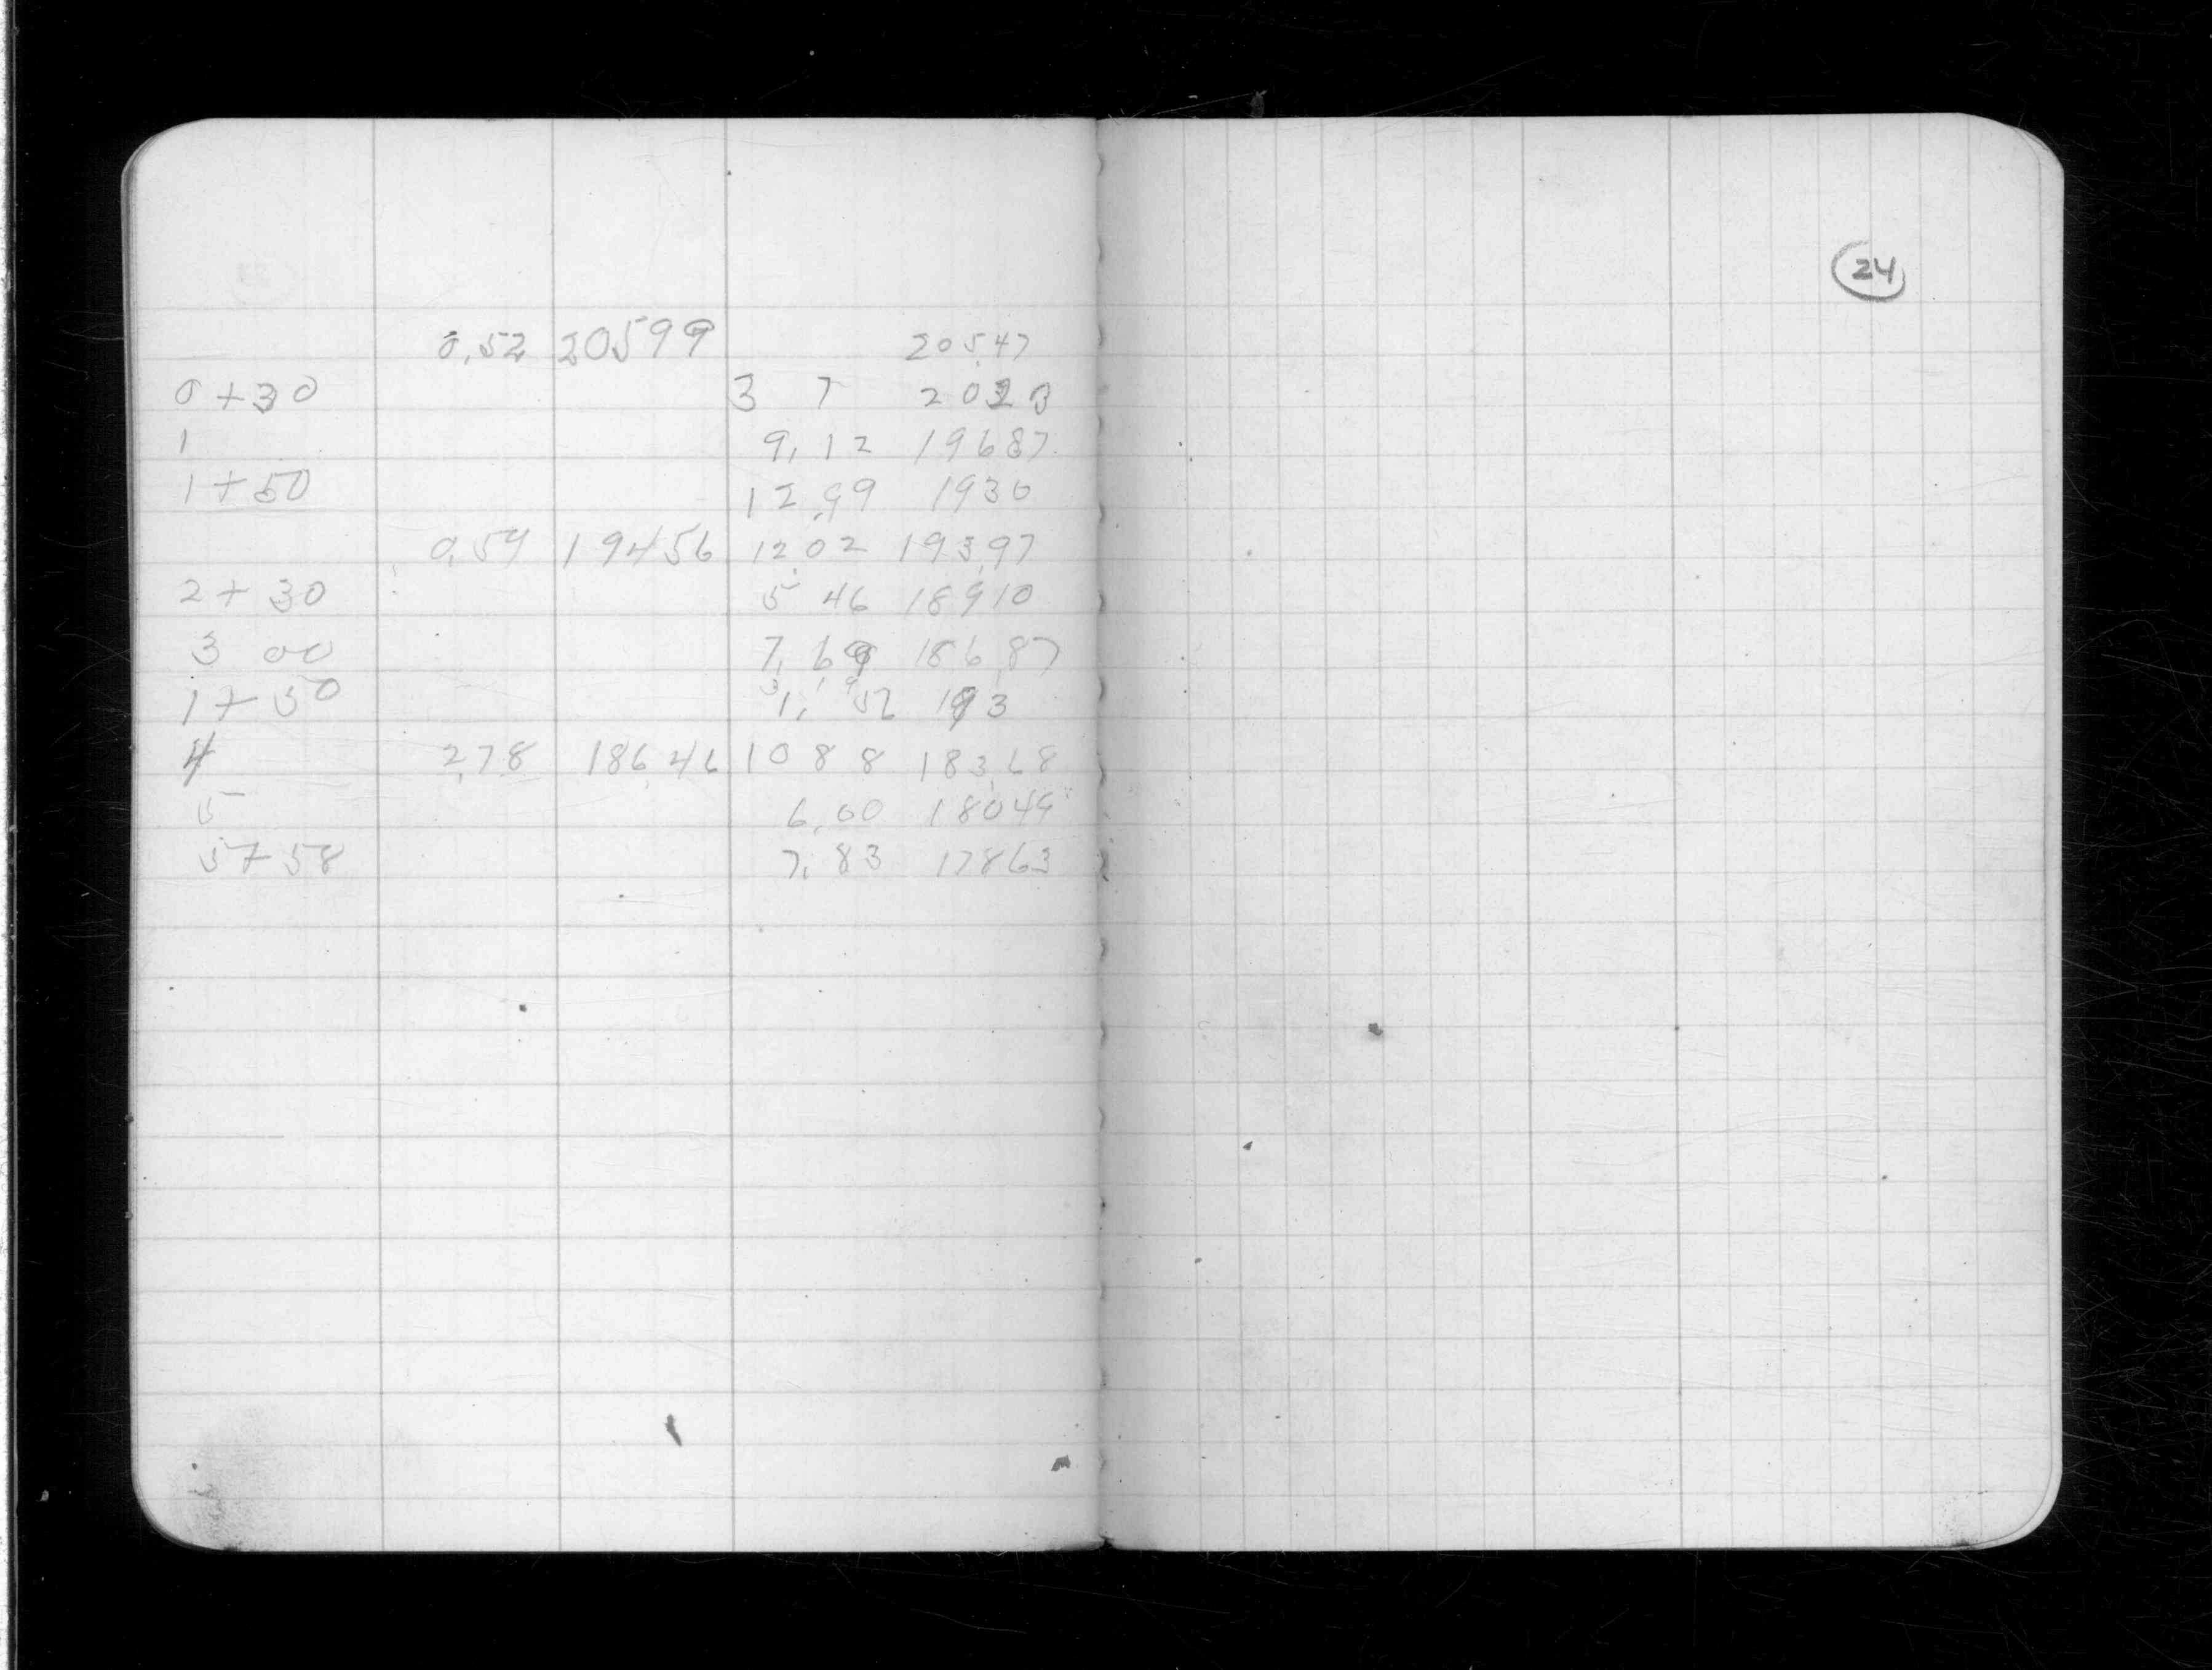 0,52 20599 20547
0+30 3 7 2023
1 9,12 19687
1+50 12,99 1930
0,59 19456 12,02 193,97
2+30 5 46 18910
3 00 7,69 186,87
1+50 1, 52 193
4 2,78 186,46 10 8 8 183,68
5 6,00 18049
5+58 7,83 17863
24